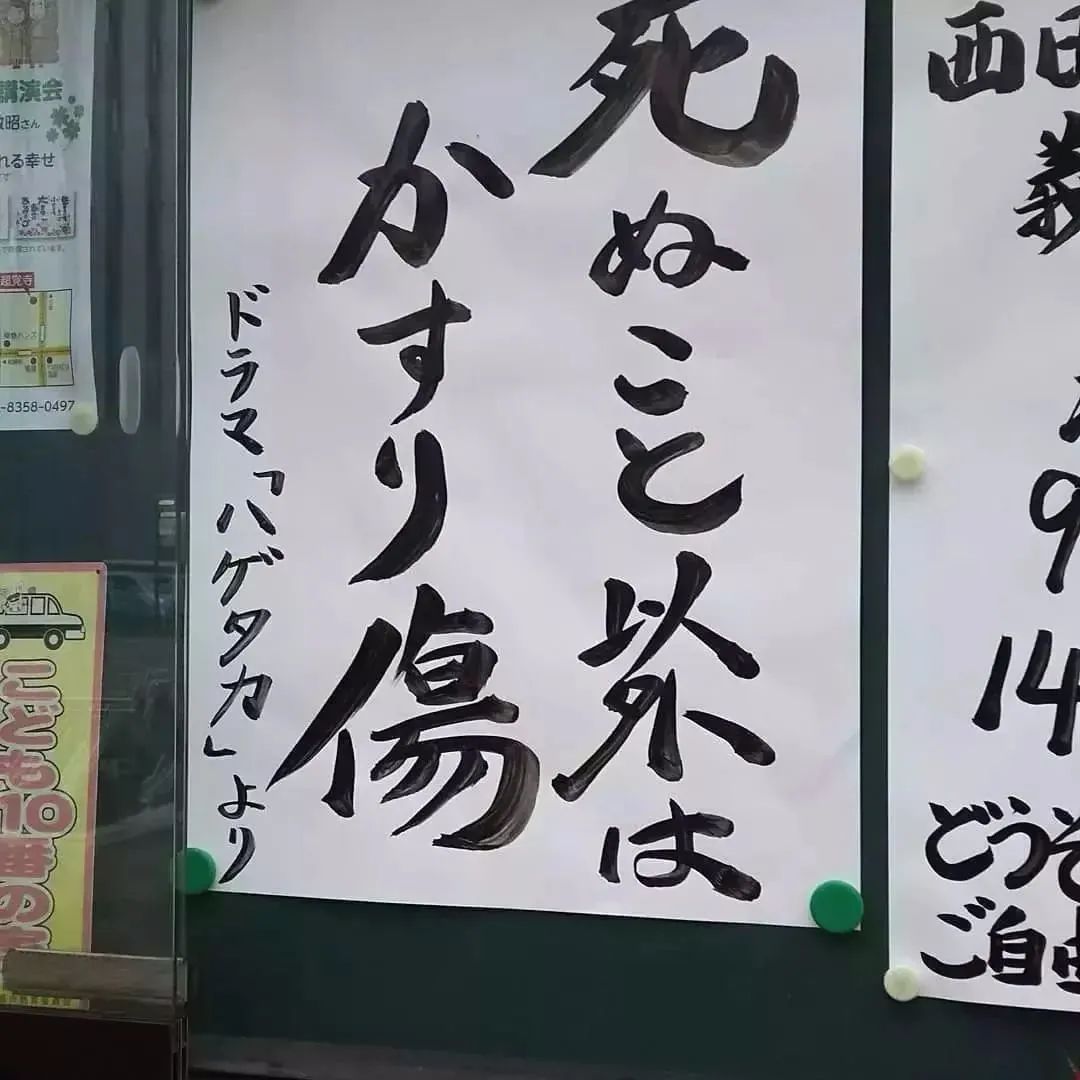 西
義
9
14
どう
ご自
死ぬこと以外は
かすり傷
ドラマ「ハゲタカ」より
講演会
昭さん
れる幸せ
超覚寺
-8358-0497
こども110番の